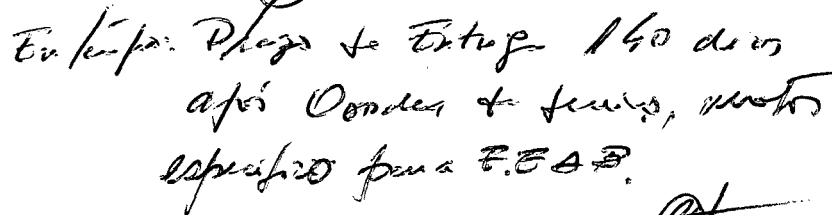 Em tempo: Prazo de Entrega 140 dias
após Ordem de serviço, motor
específico para E.E.A.B.